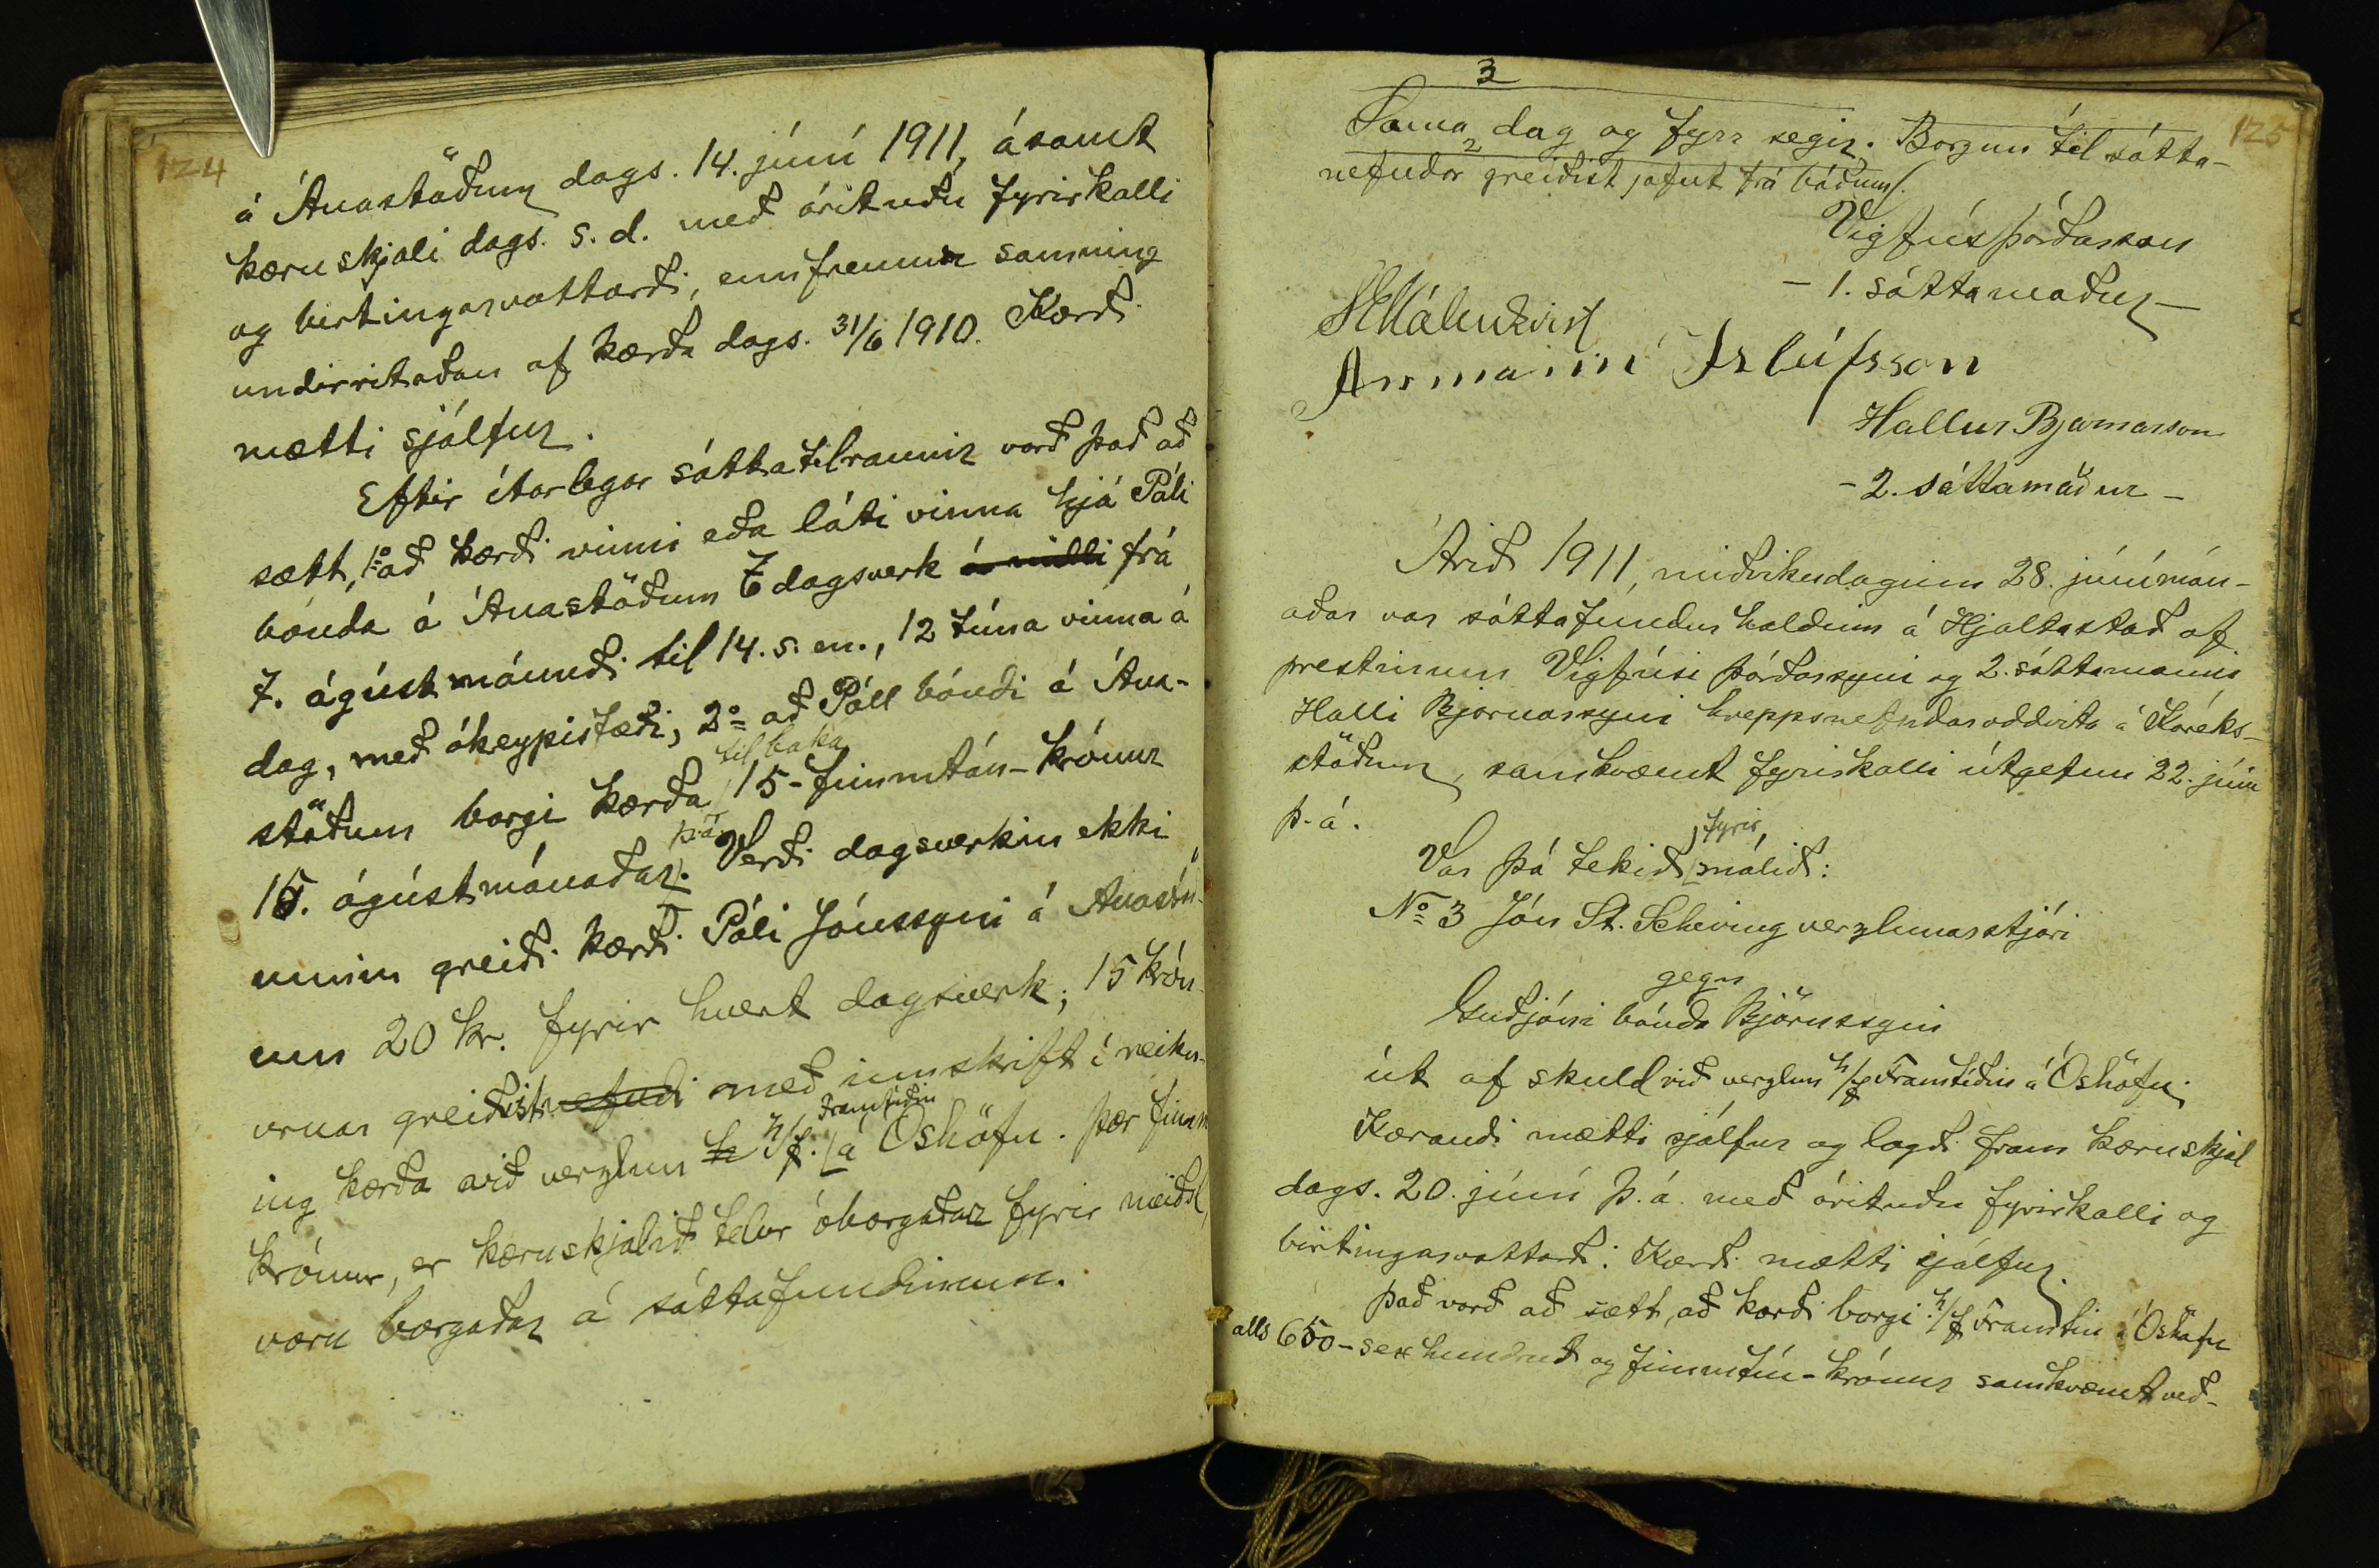 124
á Ánastöðum dags. 14. júní 1911, ásamt
kæruskjali dags. s. d. með árituðu fyrirkalli
og birtingarvottorði, ennfremur samning
undirritaðan af kærða dags. 31/6 1910. Kærði
mætti sjálfur.
Eftir ítarlegar sáttatilraunir varð það að
sætt, 1º að kærði vinni eða láti vinna hjá Páli
bónda á Ánastöðum 7 dagsverk á milli frá
7. ágústmánuði til 14. s. m., 12 tíma vinna á
dag, með ókeypis fæði, 2º að Páll bóndi á Ána-
til baka
stöðum borgi kærða 15 - fimmtán - krónur
þ. á.
15. ágústmánaðar. Verði dagsverkin ekki
unnin greiði kærði Páli Jónssyni á Ánastö-
um 20 kr. fyrir hvert dagsverk; 15 krón-
urnar greiðist nefndi með innskrift í reikn-
Framtíðin
ing kærða við verzlun h h/f. á Óshöfn. Þær fimm
krónur, er kæruskjalið telur óborgaðar fyrir
voru borgaðar á sáttafundinum.
125
3
Sama dag og fyrr segir. Borgun til sátta-
nefndar greiðist jafnt frá báðum.
Vigfús Þórðarson
- 1. sáttamaður -
Málmkvist
Ármann Ísleifsson
Hallur Bjarnarson
- 2. sáttamaður -
Árið 1911, miðvikudaginn 28. júnímán-
aðar var sáttafundur haldinn á Hjaltastað af
prestinum Vigfúsi Þórðarsyni og 2. sáttamanni
Halli Bjarnarsyni hreppsnefndaroddvita á Kóreks-
stöðum, samkvæmt fyrirkalli útgefnu 22. júní
þ. á.
fyrir
Var þá tekið málið:
Nº 3 Jón St. Scheving verzlunarstjóri
gegn
Guðjóni bónda Björnssyni
út af skuld við verzlun h/f Framtíðin á Óshöfn.
Kærandi mætti sjálfur og lagði fram kæruskjal
dags. 20. júní þ. á. með árituðu fyrirkalli og
birtingarvottorði. Kærði mætti sjálfur.
Það varð að sætt, að kærði borgi h/f Framtíin á Óshöfn
alls 650 - sex hundruð og fimmtíu - krónur samkvæmt veð-